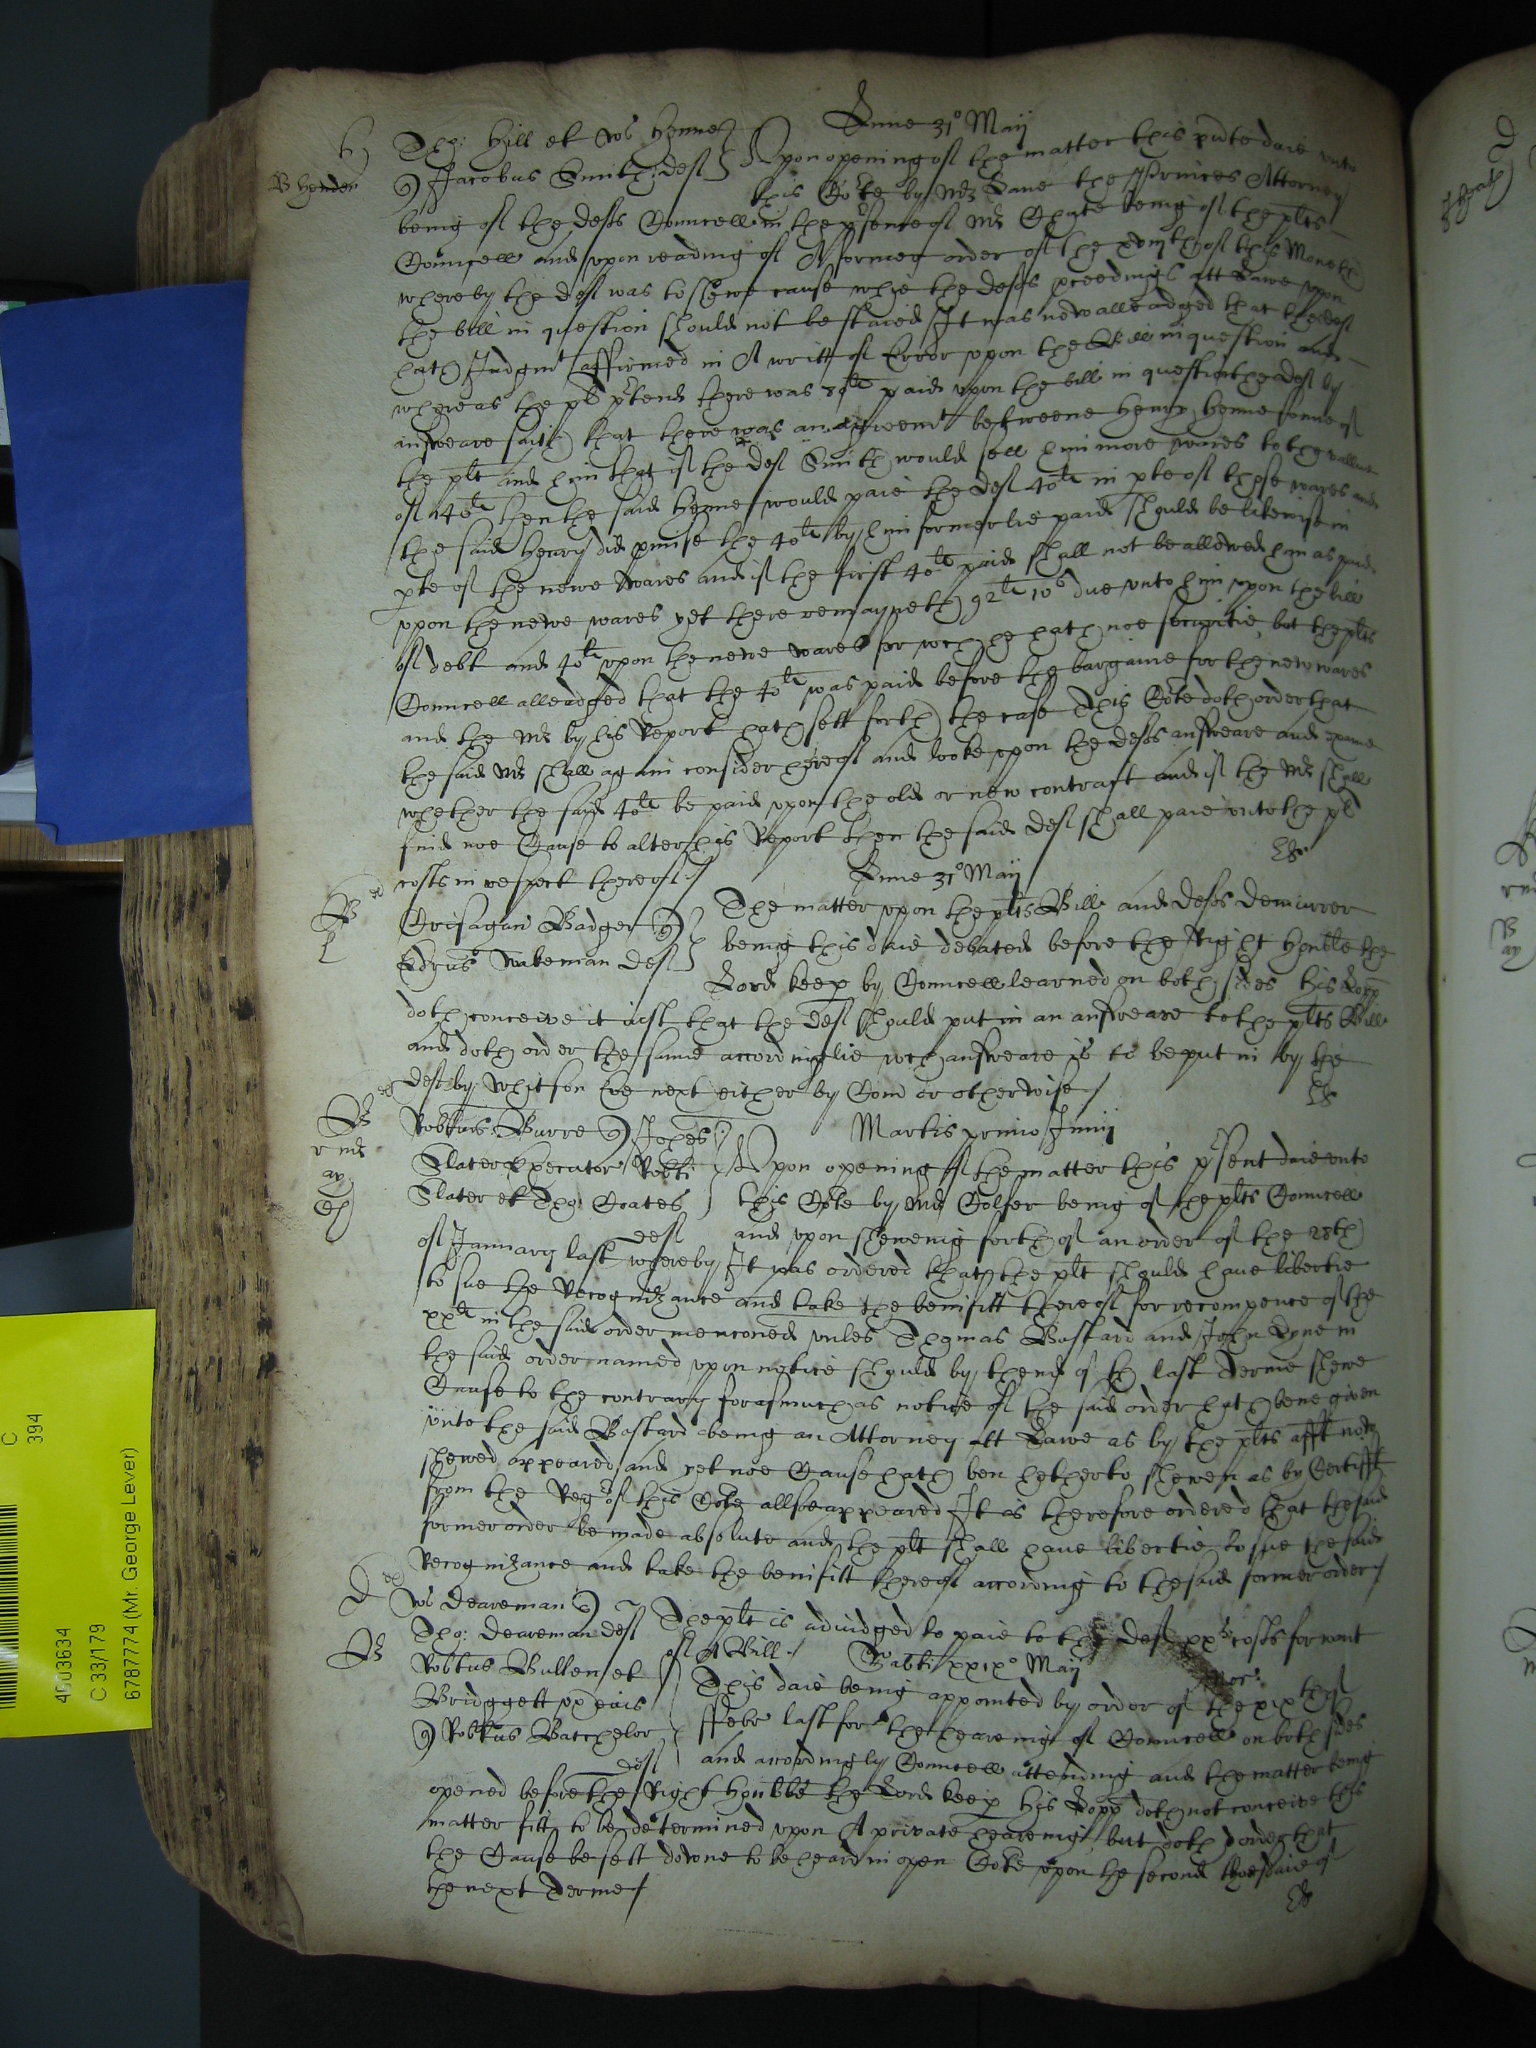 Lune 31° Maij
Tho: Hill et Ws Henne
Jacobus Smith def
Upon opening of the matter this pnte daie unto
this Cote by Mr Lane the Princes Attorney
R Henden
being of the defts Councell in the psence of Mr Chute being of the plts
Councell and upon reading of A former order of the of this Moneth
whereby the def was to shewe cause whie the defts pceedings att Lawe upon
the bill in question should not be staied It was now alleadged that the def
hath Judgmt affirmed in A writt of Error upon the Bill in question and
whereas the pl ptends there was 80li paid upon the bill in question the def by
answeare saith that there was an agreemt betweene Henry Henne sonne of
the plt and him that if the def Smith would sell him more wares to the vallue
of 140li then the said Henne would paie the def 40li in pte of those wares and
the said Henry did pmise the 40li by him formerlie paid should be likewise in
pte of the newe wares and if the first 40li paid shall not be allowed him as paid
upon the newe wares yet there remayneth 92li 10s due unto him upon the bill
of debt and 40li upon the newe wares for wch he hath noe securitie, but the plts
Councell alleadged that the 40li was paid before the bargaine for the new wares
and the Mr by his Report hath sett forth the case This Cote doth order that
the said Mr shall again consider hereof and looke upon the defts answeare and
whether the said 40li be paid upon the old or new contract and if the Mr shall
find noe Cause to alter his Report then the said def shall paie unto the pl
costs in respect thereof
Lune 31° Maij
Grisagan Badger
Edrus Wakeman def
The matter upon the plts Bill and defts demurrer
being this daie debated before the Right Honble the
Lord keep by Councell learned on both sides his Lopp
doth conceive it iust that the def should put in an answeare to the plts Bill
and doth order the same accordinglie wch answeare is to be put in by the
def by Whitson Eve next either by Com or otherwise
Robtus Burre Johes
Slater Executor Robti
Slater et Tho: Coates
def
Martis primo Junij
Upon opening of the matter this psent daie unto
this Cote by Mr Colfer being of the plts Councell
and upon shewing forth of an order of the 28th
of January last whereby It was ordered that the plt should have libertie
to sue the Recognizance and take the benifitt thereof for recompence of the
xxli in the said order menconed unles Thomas Bastard and John Lyne in
the said order named upon notice should by thend of th last Terme shewe
Cause to the contrary forasmuch as notice of the said order hath bene given
unto the said Bastard being an Attorney att Lawe as by the plts afft now
shewed appeared, and yet noe Cause hath ben hetherto shewen as by Certifft
from the Regr of this Cote allsoe appeared It is therefore ordered that the said
former order be made absolute and the plt shall have libertie to sue the said
Recognizance and take the benifitt thereof according to the said former order
Ws Deareman
Tho: Deareman def
The plt is adiudged to paie to the def xxs costs for want
of A Bill
Sabti xxix° Maij
Robtus Bullen et
Bridggett ux eius
Robtus Batchelor
def
This daie being appointed by order of the xix th of
ffebr last for the heareing of Councell on both sides
and accordingly Councell attending and the matter being
opened before the Right Honble the Lord keep his Lopp doth not conceive this
matter fitt to be determined upon A private heareing, but doth order that
the Cause be sett downe to be heard in open Cote upon the second thursdaie of
the next Terme
C
394
4003634
C 33/179
6787774 (Mr. George Lever)